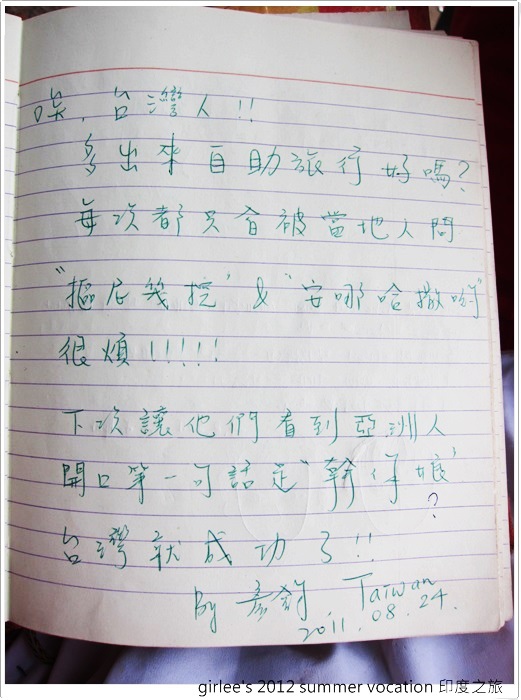 唉, 台灣人!!
多出來自助旅行好嗎?
每次都只會被當地人問
"摳尼幾挖" & "安哪哈撒喲"
很煩!!!!!
下次讓他們看到亞洲人
開口第一句話是"幹你娘"
?
台灣就成功了!!
By Taiwan
2011.08.24.
girlee's 2012 summer vocation 印度之旅